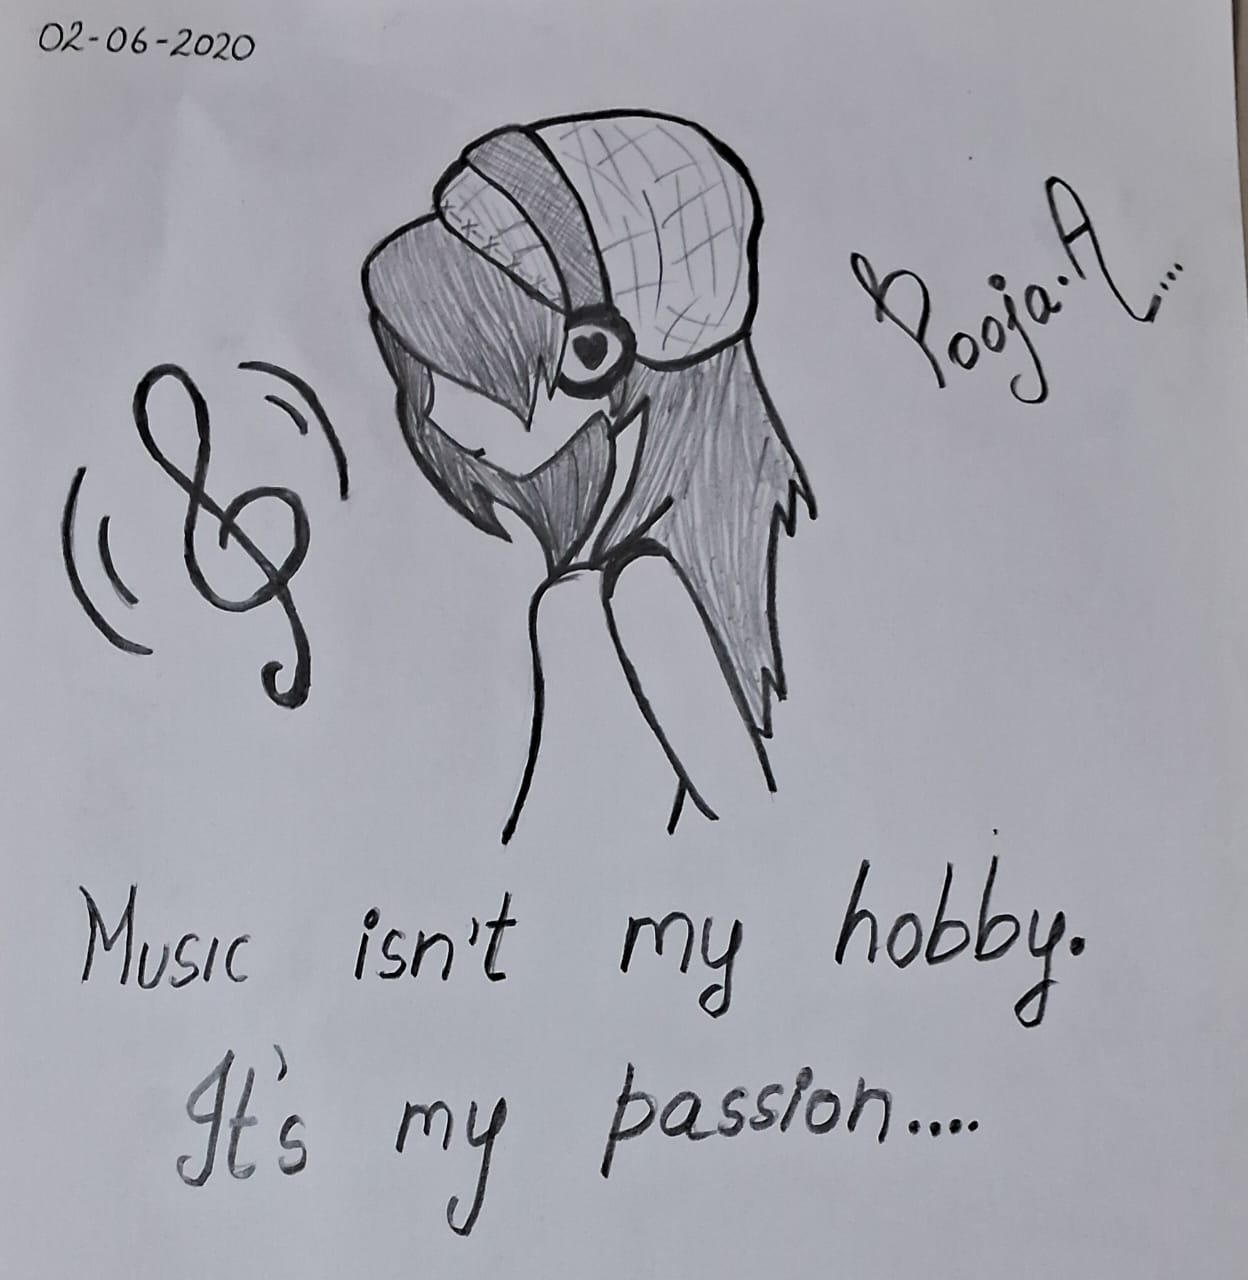 02-06-2020
Pooja.A...
Music isn't my hobby.
It's my passion....